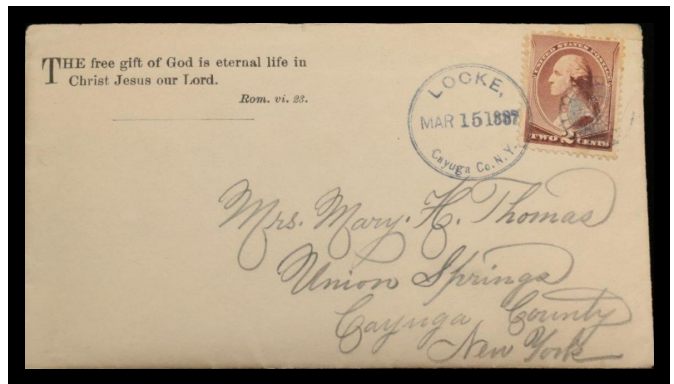 THE free gift of God is eternal life in
Christ Jesus our Lord.
Rom. vi. 23.
LOCKE,
MAR 15 1887
Cayuga Co. N.Y.
UNITED STATES POSTAGE
TWO 2 CENTS
Mrs. Mary. H. Thomas
Union Springs
Cayuga County
New York